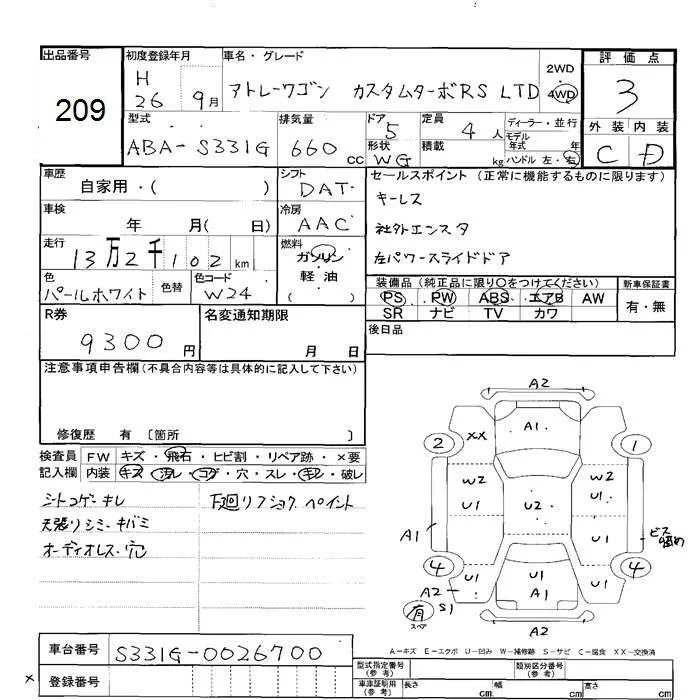 出品番号 初度登録年月 車名・グレード 評価点
209 H 26 9月 アトレーワゴン カスタムターボRS LTD 2WD 4WD 3
型式 排気量 ドア 定員 ディーラー・並行 外装 内装
ABA-S331G 660cc 5 4人 モデル年式 年
形状 WG 積載 kg ハンドル 左・右 C D
車歴 シフト セールスポイント (正常に機能するものに限ります)
自家用・( ) DAT
キーレス
車検 冷房
年 月( 日) AAC
社外エンスタ
走行 燃料
13万2千102km ガソリン
軽油
( )
左パワースライドドア
色 色替 色コード
パールホワイト W24
装備品 (純正品に限り○をつけてください) 新車保証書
PS PW ABS エアB AW 有・無
SR ナビ TV カワ
R券 名変通知期限 後日品
9300円 月 日
注意事項申告欄(不具合内容等は具体的に記入して下さい)
修復歴 有 〔箇所 〕
検査員 FW キズ・飛石・ヒビ割・リペア跡・×要
記入欄 内装 キズ・汚レ・コゲ・穴・スレ・キレ・破レ
シートコゲ・キレ 下廻リフショク、ペイント
天張リシミ・キバミ
オーディオレス・穴
A2
A1
2 XX 1
W2 W2
U1 U2 U1
A1 ビス留め
4 4
U1 U1 U1
A2 A1
有 S1
スペア A2
A-キズ E-エクボ U-凹み W-補修跡 S-サビ C-腐食 XX-交換済
車台番号 S331G-0026700
登録番号
×
型式指定番号(参考) 類別区分番号(参考)
車庫証明用(参考) 長さ cm 幅 cm 高さ cm